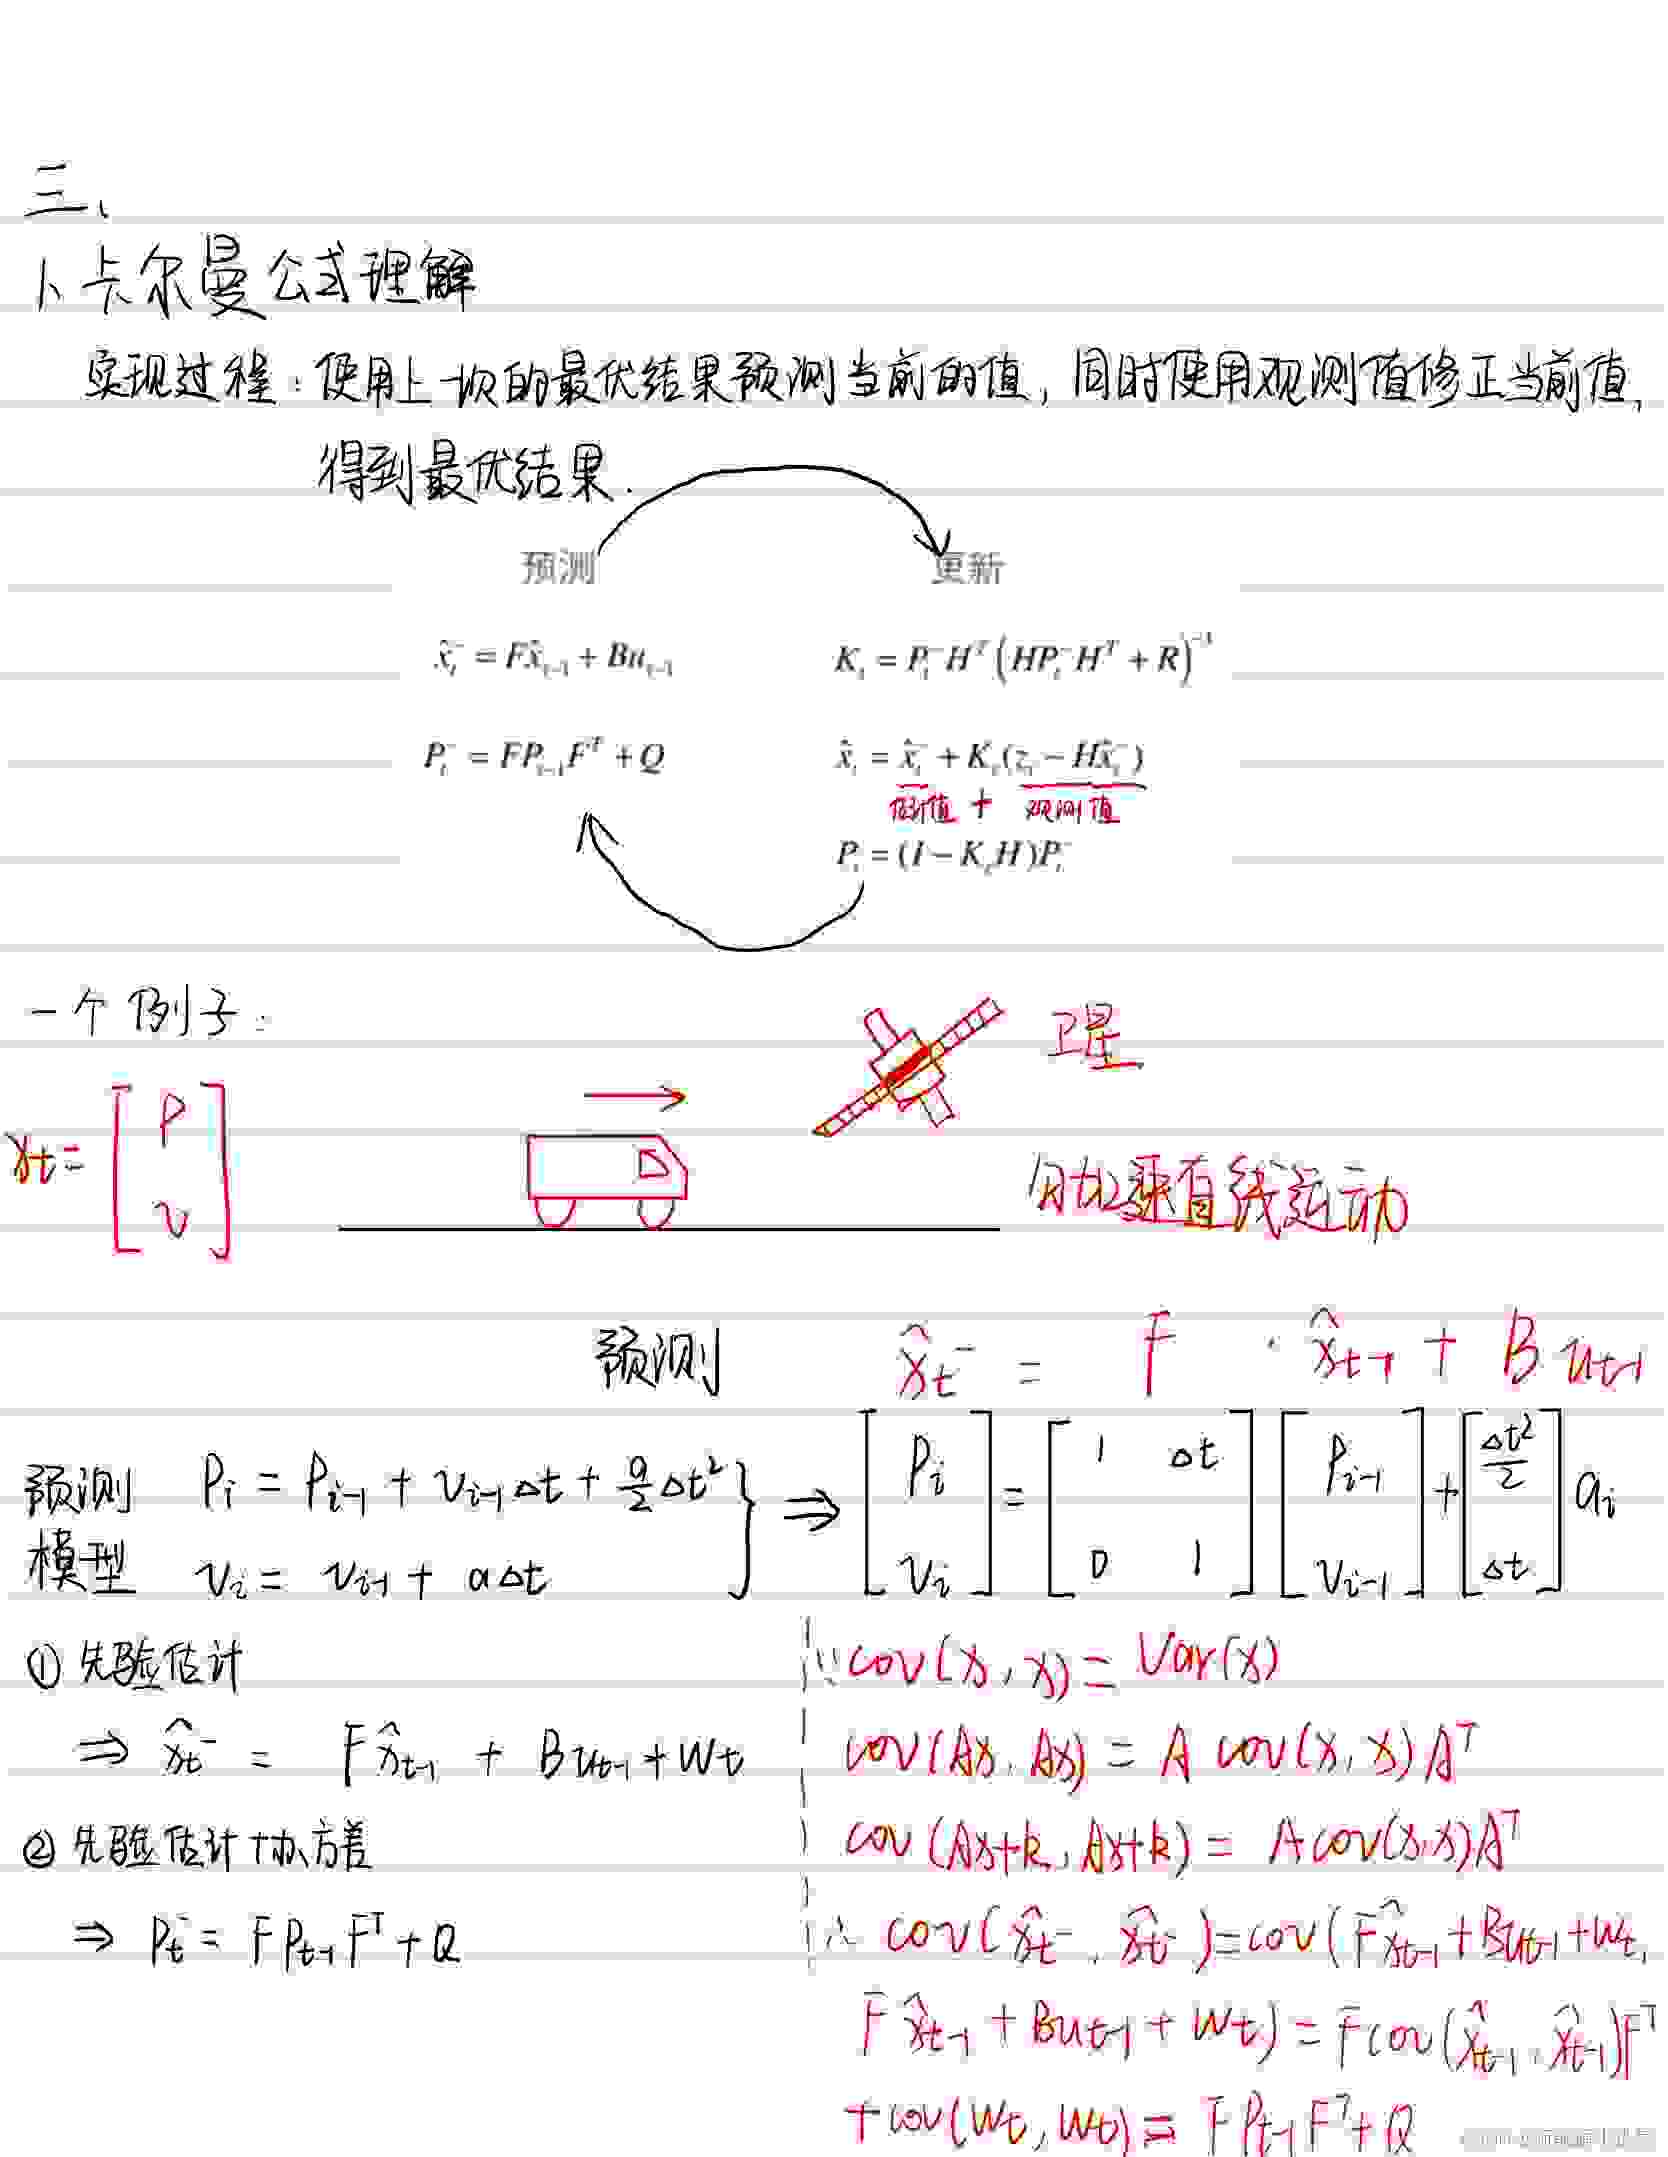 三、
1、卡尔曼公式理解
实现过程：使用上一次的最优结果预测当前的值，同时使用观测值修正当前值，
得到最优结果.
预测 更新
x̂ₜ⁻ = Fx̂ₜ₋₁ + Buₜ₋₁ Kₜ = Pₜ⁻Hᵀ(HPₜ⁻Hᵀ + R)⁻¹
Pₜ⁻ = FPₜ₋₁Fᵀ + Q x̂ₜ = x̂ₜ⁻ + Kₜ(zₜ − Hx̂ₜ⁻)
估计值 + 观测值
Pₜ = (I − KₜH)Pₜ⁻
一个例子：
卫星
xt = [P v]
直线运动
预测 x̂t⁻ = F · x̂t-1 + B ut-1
预测模型 Pi = Pi-1 + vi-1Δt + a/2 Δt² vi = vi-1 + aΔt } ⇒ [Pi vi] = [1 Δt 0 1] [Pi-1 vi-1] + [Δt²/2 Δt] ai
① 先验估计
⇒ x̂t⁻ = Fx̂t-1 + But-1 + wt
② 先验估计协方差
⇒ Pt⁻ = FPt-1Fᵀ + Q
∵ cov(x, x) = Var(x)
cov(Ax, Ax) = A cov(x, x)Aᵀ
cov(Ax+k, Ax+k) = A cov(x, x)Aᵀ
∴ cov(x̂t⁻, x̂t⁻) = cov(Fx̂t-1 + But-1 + wt,
Fx̂t-1 + But-1 + wt) = Fcov(x̂t-1, x̂t-1)Fᵀ
+ cov(wt, wt) = FPt-1Fᵀ + Q